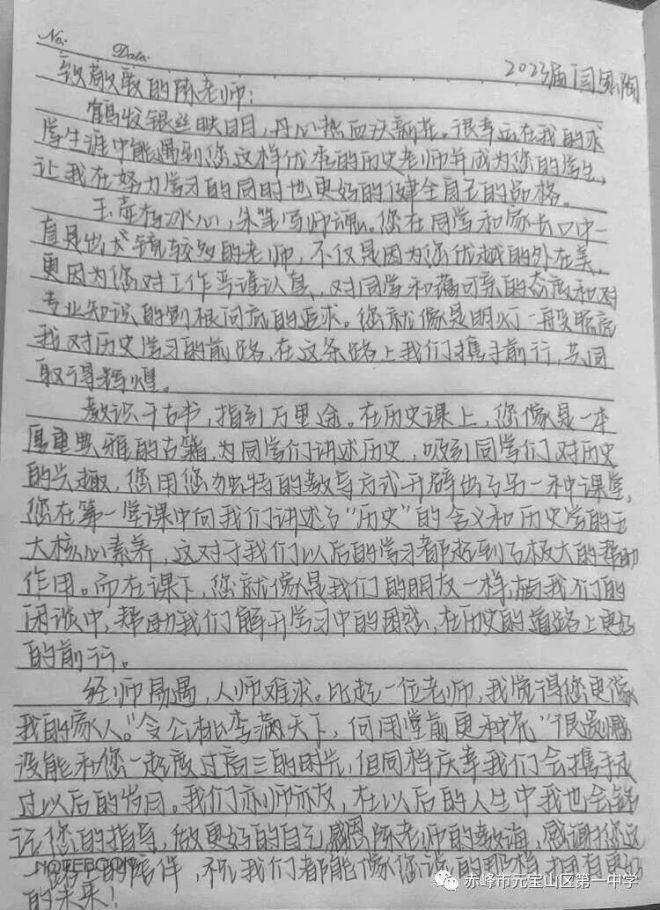 No.
Date.
2023届 闫
致敬爱的陈老师：
鹤发银丝映日月，丹心热血沃新花。很幸运在我的求
学生涯中能遇到您这样优秀的历史老师并成为您的学生，
让我在努力学习的同时也更好的健全自己的品格。
玉壶存冰心，朱笔写师魂。您在同学和家长口中一
直是出镜较多的老师，不仅是因为您优越的外在美，
更因为您对工作严谨认真，对同学和蔼可亲的态度和对
专业知识的刨根问底的追求。您就像是明灯一般照亮
我对历史学习的前路，在这条路上我们携手前行，共同
取得辉煌。
教识于古书，指引万里途。在历史课上，您像是一本
厚重典雅的古籍，为同学们讲述历史，吸引同学们对历史
的兴趣，您用您独特的教导方式开辟出了另一种课堂，
您在第一堂课中向我们讲述了“历史”的含义和历史学的五
大核心素养，这对于我们以后的学习都起到了极大的帮助
作用。而在课下，您就像是我们的朋友一样，与我们的
闲谈中，帮助我们解开学习中的困惑，在历史的道路上更好
的前行。
经师易遇，人师难求。比起一位老师，我觉得您更像
我的家人。“令公桃李满天下，何用堂前更种花”很遗憾
没能和您一起度过高三的时光，但同样庆幸我们会携手走
过以后的岁月。我们亦师亦友，在以后的人生中我也会铭
记您的指导，做更好的自己，感恩陈老师的教诲，感谢您这
的陪伴，祝我们都能像您说的那样，拥有更好
的未来！
NOTEBOOK
赤峰市元宝山区第一中学